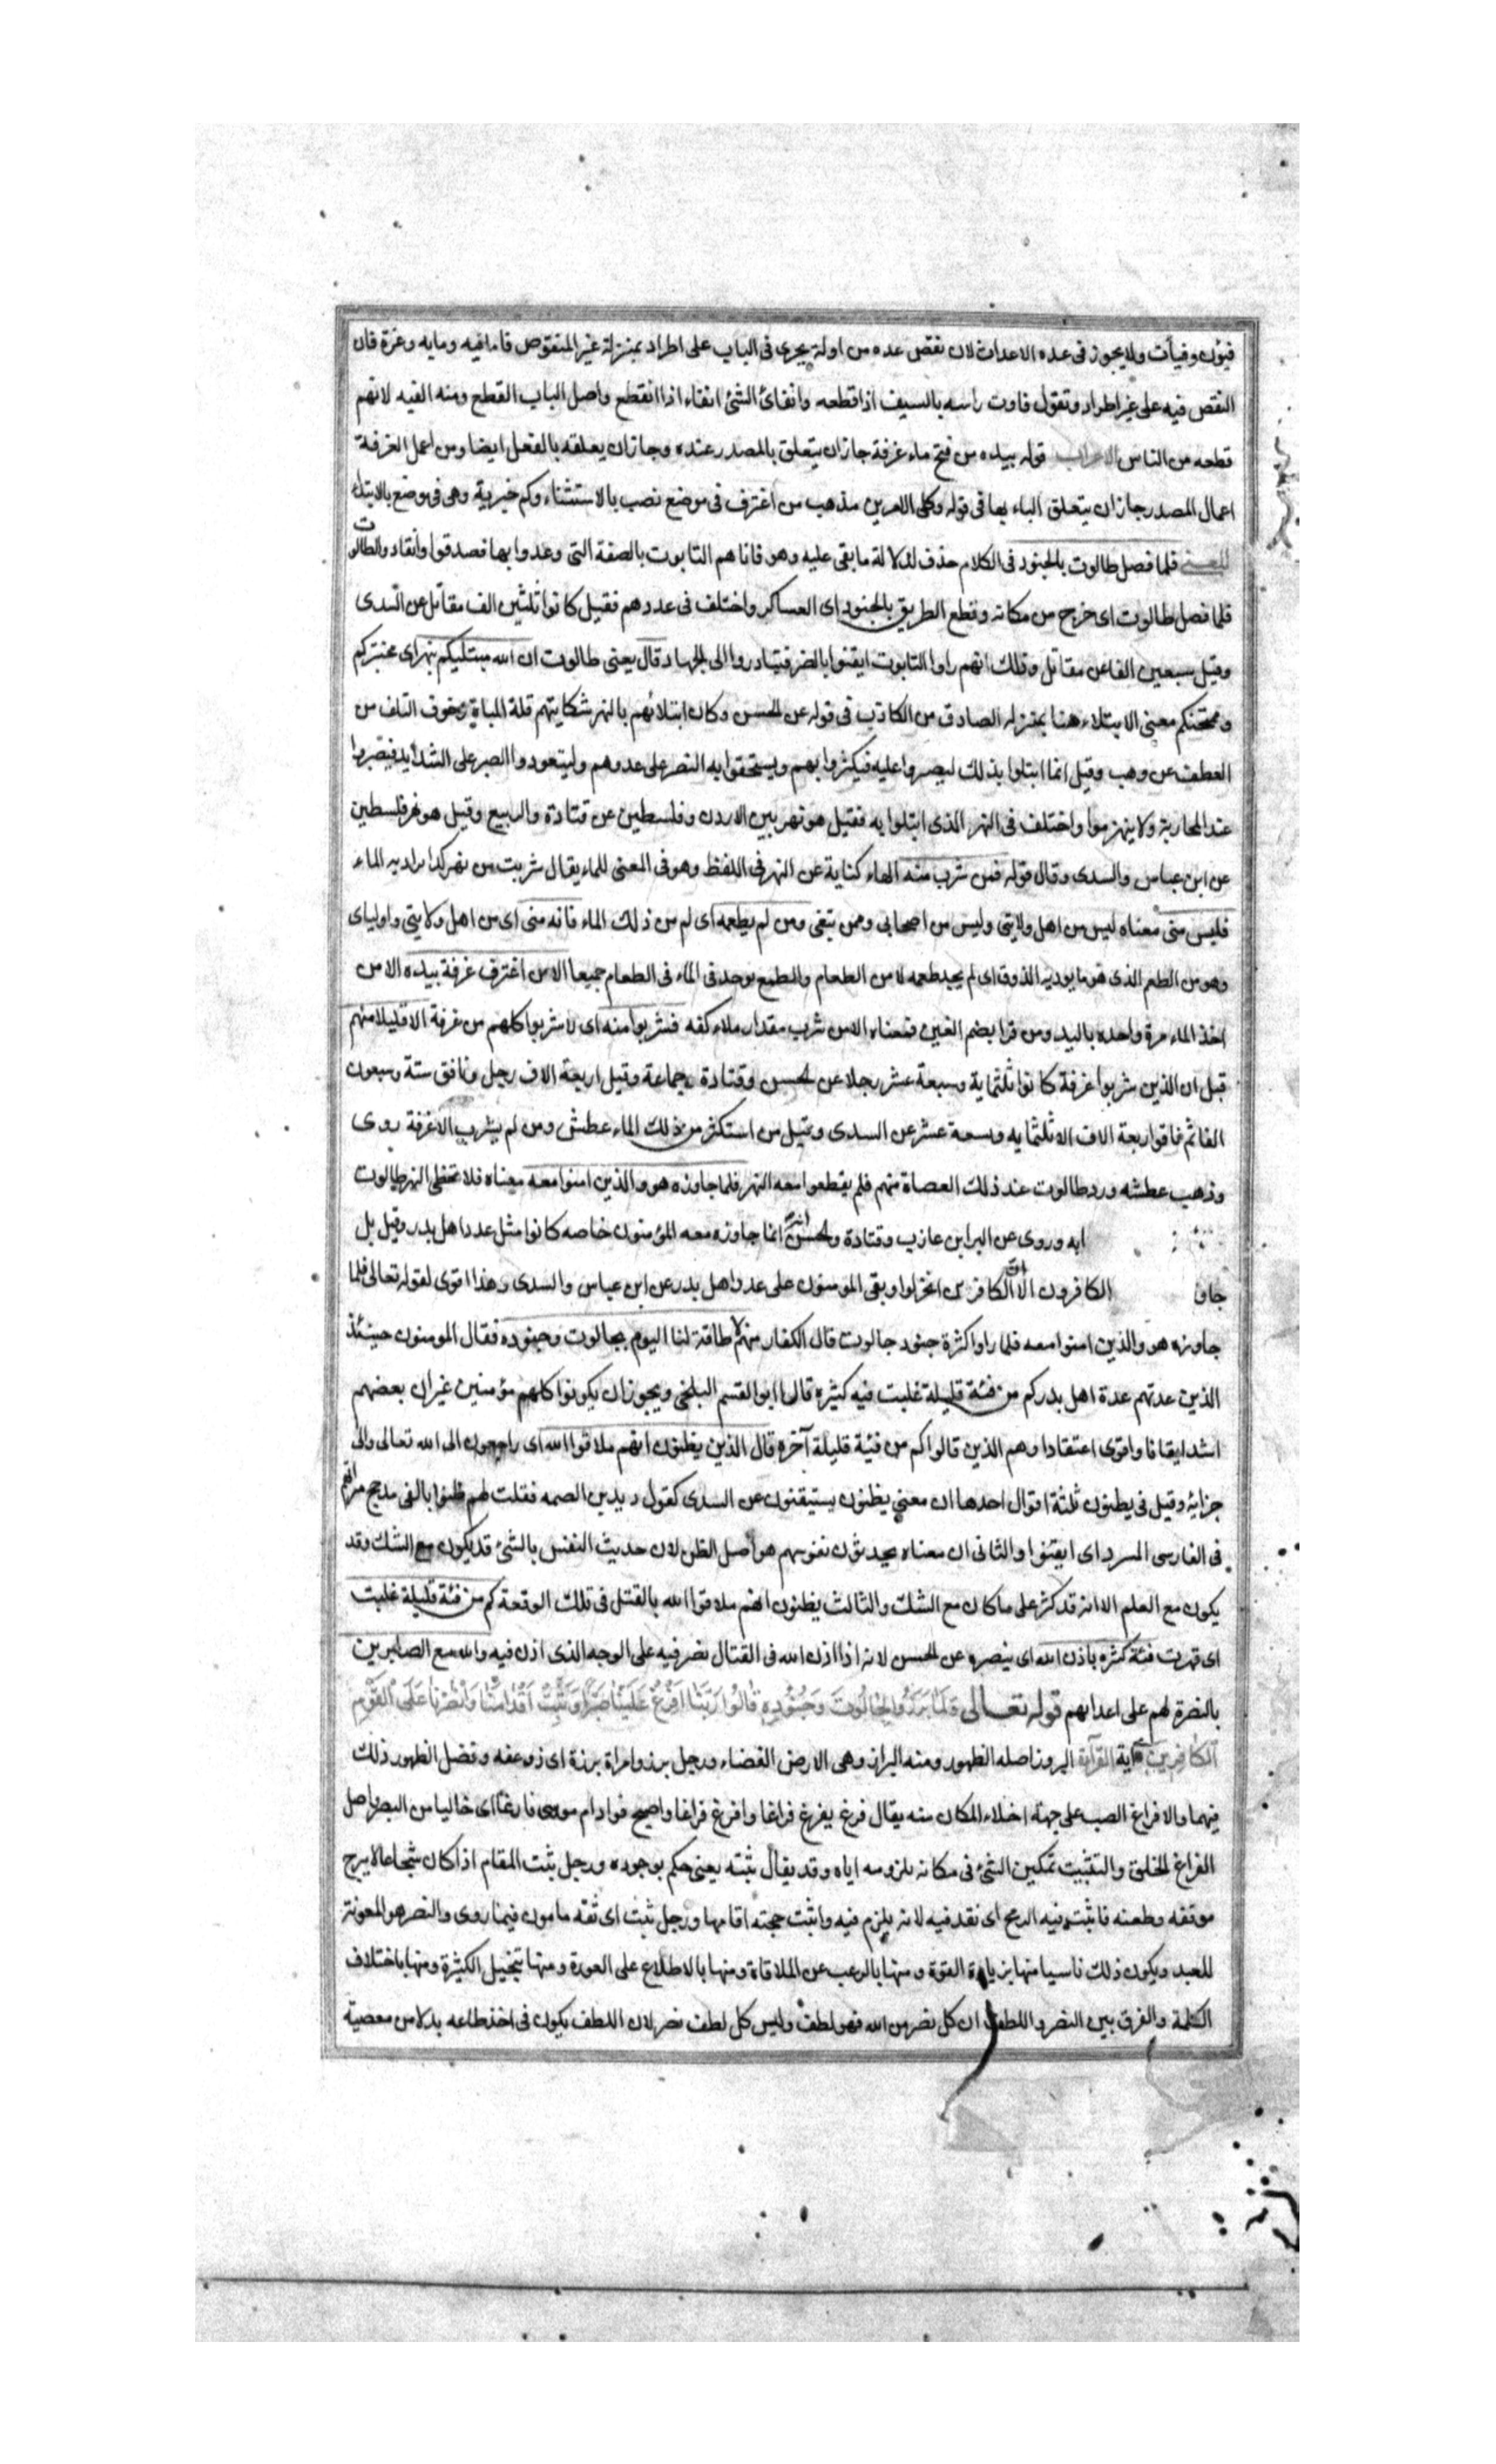 فيؤن وفيأت ولا يجوز فى عده الاعدات لان نقص عده من اوله يجرى فى الباب على اطراد بمنزلة غير المنقوص فاما فيه ومايه وعزة فان
النقص فيه على غير اطراد وتقول فاوت راسه بالسيف اذا قطعه وانفائ الشئ انفاء اذا انقطع واصل الباب القطع ومنه الفيه لانهم
قطعه من الناس الاعراب قوله بيده من فتح ماء غرفة جاز ان يتعلق بالمصدر عنده وجاز ان يعلقه بالفعل ايضا ومن اعمل الغرفة
اعمال المصدر جاز ان يتعلق الباء بها فى قوله وكلى الامرين مذهب من اغترف فى موضع نصب بالاستثناء وكم خبرية وهى فى موضع بالابتداء
المعنى فلما فصل طالوت بالجنود فى الكلام حذف لدلالة ما بقى عليه وهو فاتاهم التابوت بالصفة التى وعدوا بها فصدقوا وانقادوا لطالوت
فلما فصل طالوت اى خرج من مكانه وقطع الطريق بالجنود اى العساكر واختلف فى عددهم فقيل كانوا ثلثين الف مقاتل عن السدى
وقيل سبعين الفا عن مقاتل وذلك انهم راوا التابوت ايقنوا بالنصر فتبادروا الى الجهاد قال يعنى طالوت ان الله مبتليكم بنهر اى مختبركم
وممتحنكم معنى الابتلاء هنا بمنزله الصادق من الكاذب فى قوله عن الحسن وكان ابتلائهم بالنهر شكايتهم قلة المياه وخوف التلف من
العطف عن وهب وقيل انما ابتلوا بذلك ليصبروا عليه فيكثروا بهم ويستحقوا به النصر على عدوهم وليتعودوا الصبر على الشدايد فيصبروا
عند المحاربة ولا ينهزموا واختلف فى النهر الذى ابتلوا به فقيل هو نهر بين الاردن وفلسطين عن قتادة والربيع وقيل هو نهر فلسطين
عن ابن عباس والسدى وقال قوله فمن شرب منه الهاء كناية عن النهر فى اللفظ وهو فى المعنى للماء يقال شربت من نهر كذا يراد به الماء
فليس منى معناه ليس من اهل ولايتى وليس من اصحابى وممن يتبعنى ومن لم يطعمه اى لم من ذلك الماء فانه منى اى من اهل ولايتى واولياى
وهو من الطعم الذى هو ما يوديه الذوق اى لم يجد طعمه لا من الطعام والطعم يوجد فى الماء فى الطعام جميعا الا من اغترف غرفة بيده الا من
اخذ الماء مرة واحده باليد ومن قرا بضم الغين فمعناه الا من شرب مقدار ملاء كفه فشربوا منه اى لا شربوا كلهم من غرفة الا قليلا منهم
قيل ان الذين شربوا غرفة كانوا ثلثماية وسبعة عشر رجلا عن الحسن وقتادة وجماعة وقيل اربعة الاف رجل ونافق ستة وسبعون
الفا ثم فاقوا ربعة الاف الا ثلثمايه وسبعة عشر عن السدى وقيل من استكثر من ذلك الماء عطش ومن لم يشرب الا غرفة روى
وذهب عطشه ورد طالوت عند ذلك العصاة منهم فلم يقطعوا معه النهر فلما جاوزه هو والذين امنوا معه معناه فلا تخطى النهر طالوت
ابه وروى عن البرا ابن عازب وقتادة والحسن انه انما جاوزه معه المؤمنون خاصه كانوا مثل عدد اهل بدر وقيل بل
جاو الكافرون الا ان الكافرين انخزلوا وبقى المومنون على عدد اهل بدر عن ابن عباس والسدى وهذا اقوى لقوله تعالى فلما
جاوزه هو والذين امنوا معه فلما راوا كثرة جنود جالوت قال الكفار منهم لا طاقة لنا اليوم بجالوت وجنوده فقال المومنون حينئذ
الذين عدتهم عدة اهل بدر كم من فئة قليلة غلبت فيه كثيره قال ابو القسم البلخى ويجوز ان يكونوا كلهم مؤمنين غير ان بعضهم
اشد ايقانا واقوى اعتقادا وهم الذين قالوا كم من فيئة قليلة آخره قال الذين يظنون انهم ملاقوا الله اى راجعون الى الله تعالى والى
جزايه وقيل فى يظنون ثلثة اقوال احدها ان معنى يظنون يستيقنون عن السدى كقول دريد بن الصمه فقلت لهم ظنوا بالفى مدجج سراتهم
فى الفارسى المسرد اى ايقنوا والثانى ان معناه يحدثون نفوسهم هو اصل الظن لان حديث النفس بالشئ قد يكون مع الشك وقد
يكون مع العلم الا انه قد كثر على ما كان مع الشك والثالث يظنون انهم ملاقوا الله بالقتل فى تلك الوقعة كم من فئة قليلة غلبت
اى قهرت فئة كثره باذن الله اى بنصره عن الحسن لانه اذا اذن الله فى القتال نصر فيه على الوجه الذى اذن فيه والله مع الصابرين
بالنصرة لهم على اعدايهم قوله تعالى فَلَمَّا بَرَزُوا لِجَالُوتَ وَجُنُودِهِ قَالُوا رَبَّنَا اَفْرِغْ عَلَيْنَا صَبْرًا وَثَبِّتْ اَقْدَامَنَا وَانْصُرْنَا عَلَى الْقَوْمِ
الكَافِرِينَ آية القرآءة البروز اصله الظهور ومنه البراز وهى الارض الفضاء ورجل برز وامراة برزة اى ذو عفه وفضل الظهور ذلك
فيهما والافراغ الصب على جهة اخلاء المكان منه يقال فرغ يفرغ فراغا وافرغ فراغا واصبح فواد ام موسى فارغا اى خاليا من الصبر واصل
الفراغ الخلو والتثبيت تمكين الشئ فى مكانه بلزومه اياه وقد يقال ثبته يعنى حكم بوجوده ورجل ثبت المقام اذا كان شجاعا لا يبرح
موقفه وطعنه فاثبت فيه الرمح اى نفد فيه لانه يلزم فيه واثبت حجته اقامها ورجل ثبت اى ثقه مامون فيما روى والنصر هو المعونة
للعبد ويكون ذلك ناسيا منها بزيادة القوة ومنها بالرعب عن الملاقاة ومنها بالاطلاع على العورة ومنها بتخييل الكثرة ومنها باختلاف
الكلمة والفرق بين النصر واللطف ان كل نصر من الله فهو لطف وليس كل لطف نصر لان اللطف يكون فى اخذ طاعه بدلا من معصية